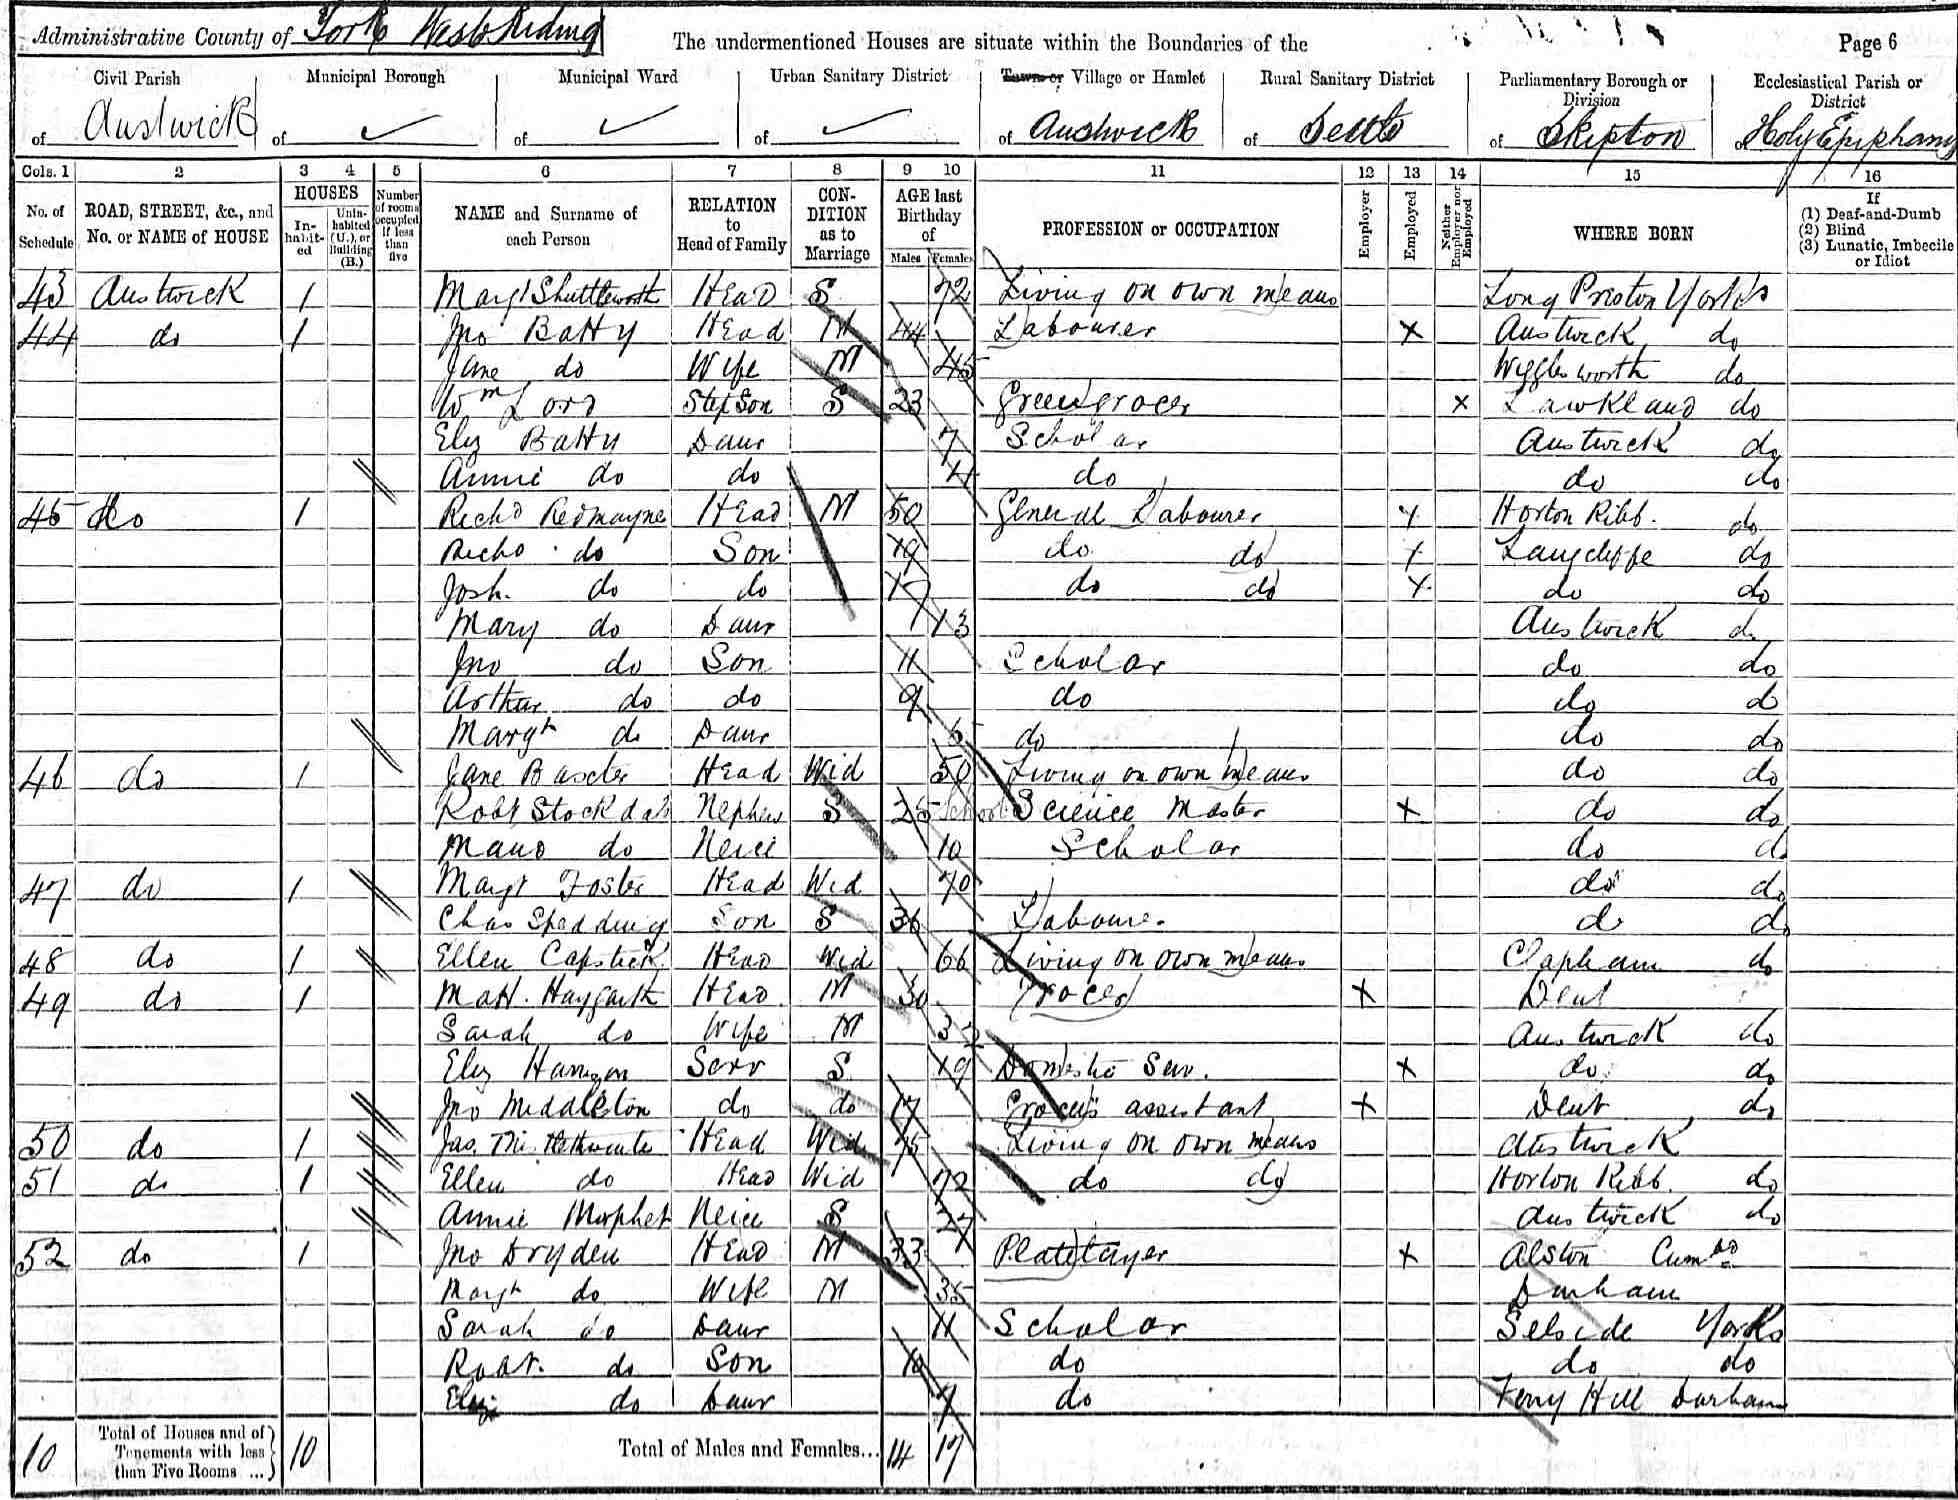 Administrative County of York West Riding The undermentioned Houses are situate within the Boundaries of the Page 6
Civil Parish Municipal Borough Municipal Ward Urban Sanitary District Town or Village or Hamlet Rural Sanitary District Parliamentary Borough or Division Ecclesiastical Parish or District
of Austwick of ✓ of ✓ of ✓ of Austwick of Settle of Skipton of Holy Epiphany
Cols. 1 2 3 4 5 6 7 8 9 10 11 12 13 14 15 16
No. of Schedule ROAD, STREET, &c., and No. or NAME of HOUSE HOUSES In-habit-ed Unin-habited (U.), or Building (B.) Number of rooms occupied if less than five NAME and Surname of each Person RELATION to Head of Family CON-DITION as to Marriage AGE last Birthday of Males Females PROFESSION or OCCUPATION Employer Employed Neither Employer nor Employed WHERE BORN If (1) Deaf-and-Dumb (2) Blind (3) Lunatic, Imbecile or Idiot
43 Austwick 1 Margt Shuttleworth Head S 72 Living on own means Long Preston Yorks
44 do 1 Jno Batty Head M 44 Labourer X Austwick do
Jane do Wife M 45 Wigglesworth do
Wm Lord Step Son S 23 Greengrocer X Lawkland do
Eliz Batty Daur 7 Scholar Austwick do
Annie do do 4 do do do
45 do 1 Richd Redmayne Head M 50 General Labourer X Horton Ribb. do
Richd do Son 19 do do X Langcliffe do
Josh. do do 17 do do X do do
Mary do Daur 13 Austwick do
Jno do Son 11 Scholar do do
Arthur do do 9 do do do
Margt do Daur 5 do do do
46 do 1 Jane Baxter Head Wid 50 Living on own means do do
Robt Stockdale Nephew S 25 School Science Master X do do
Maud do Neice 10 Scholar do do
47 do 1 Margt Foster Head Wid 70 do do
Chas Spedding Son S 36 Labourer do do
48 do 1 Ellen Capstick Head Wid 66 Living on own means Clapham do
49 do 1 Matt. Haygarth Head M 30 Grocer X Dent
Sarah do Wife M 32 Austwick do
Eliz Harrison Serv S 19 Domestic Serv. X do do
Jno Middleton do do 17 Grocer's assistant X Dent do
50 do 1 Jas. Head Wid 75 Living on own means Austwick
51 do 1 Ellen do Head Wid 72 do do Horton Ribb. do
Annie Morphet Neice S 27 Austwick do
52 do 1 Jno Dryden Head M 33 Platelayer X Alston Cumbd
Margt do Wife M 35 Durham
Sarah do Daur 11 Scholar Selside Yorks
Robt. do Son 10 do do do
Eliz do Daur 7 do Ferry Hill Durham
10 Total of Houses and of Tenements with less than Five Rooms ... 10 Total of Males and Females... 14 17